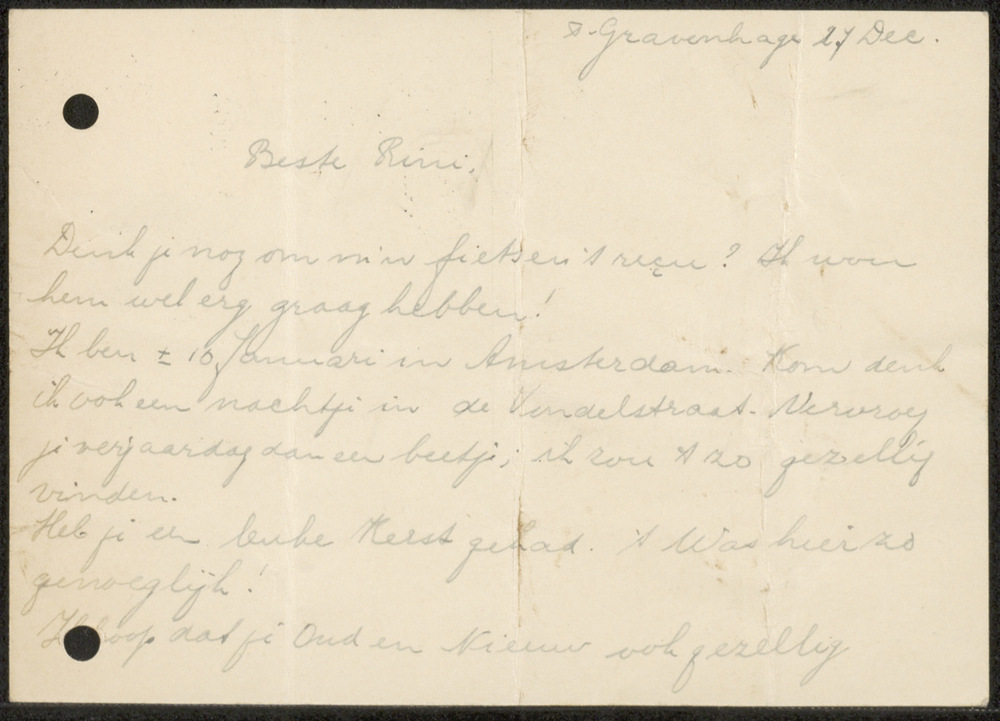 s-Gravenhage 27 Dec.
Beste Rini,
Denk je nog om m'n fietsen 't reçu? Ik wou
hem wel erg graag hebben!
Ik ben ± 10 Januari in Amsterdam. Kom denk
ik ook een nachtje in de Vondelstraat. Vervroeg
je verjaardag dan een beetje; ik zou 't zo gezellig
vinden.
Heb je een leuke Kerst gehad. 't Was hier zo
genoeglijk!
Ik hoop dat je Oud en Nieuw ook gezellig